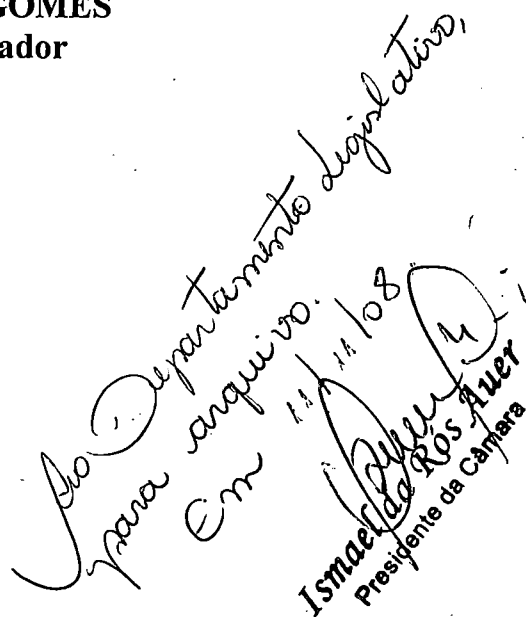 GOMES
ador
Ao Departamento Legislativo,
para arquivo.
Em 11/11/08
Ismael da Rós Auer
Presidente da Câmara